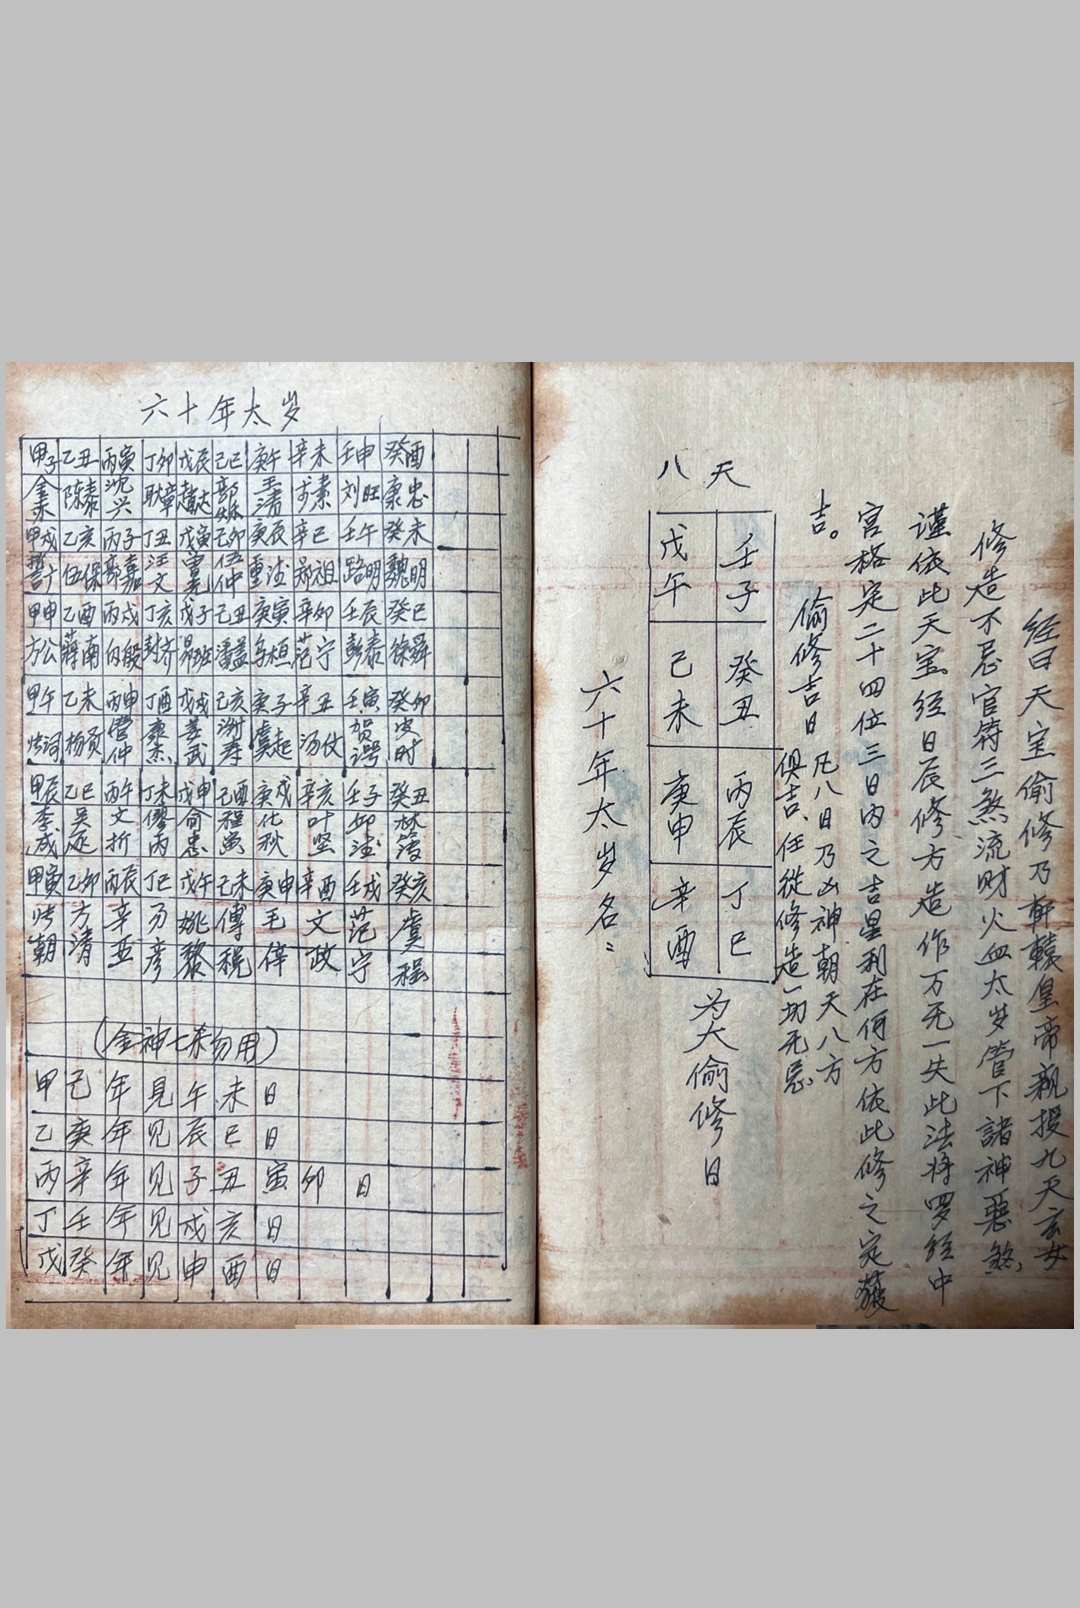 经曰天宝偷修乃軒轅皇帝親授九天玄女
修造不忌官符三煞流财火血太岁管下諸神惡煞
谨依此天宝经日辰修方造作万无一失此法将罗经中
宫格定二十四位三日内之吉星利在何方依此修之定獲
吉。
偷修吉日
凡八日乃凶神朝天八方
俱吉、任從修造一切无忌
八天
壬子 癸丑 丙辰 丁巳
戊午 己未 庚申 辛酉
为大偷修日
六十年太岁名:
六十年太岁
甲子 乙丑 丙寅 丁卯 戊辰 己巳 庚午 辛未 壬申 癸酉
金赤 陈泰 沈兴 耿章 趙达 郭 王清 素 刘旺 康忠
甲戌 乙亥 丙子 丁丑 戊寅 己卯 庚辰 辛巳 壬午 癸未
誓广 伍保 郭嘉 汪文 曾光 伍仲 重 郑祖 路明 魏明
甲申 乙酉 丙戌 丁亥 戊子 己丑 庚寅 辛卯 壬辰 癸巳
方公 蒋南 向般 封齐 易班 潘盖 桓 范宁 彭泰 徐舜
甲午 乙未 丙申 丁酉 戊戌 己亥 庚子 辛丑 壬寅 癸卯
张词 杨贤 管仲 康杰 姜武 谢寿 虞起 汤仗 贺谔 皮时
甲辰 乙巳 丙午 丁未 戊申 己酉 庚戌 辛亥 壬子 癸丑
李成 吴遂 文折 缪丙 俞忠 程寅 化秋 叶坚 邱 林
甲寅 乙卯 丙辰 丁巳 戊午 己未 庚申 辛酉 壬戌 癸亥
张朝 方清 辛亚 易彦 姚黎 傅税 毛倖 文政 范宁 虞程
(金神七杀勿用)
甲己年見午未日
乙庚年见辰巳日
丙辛年见子丑寅卯日
丁壬年见戌亥日
戊癸年见申酉日